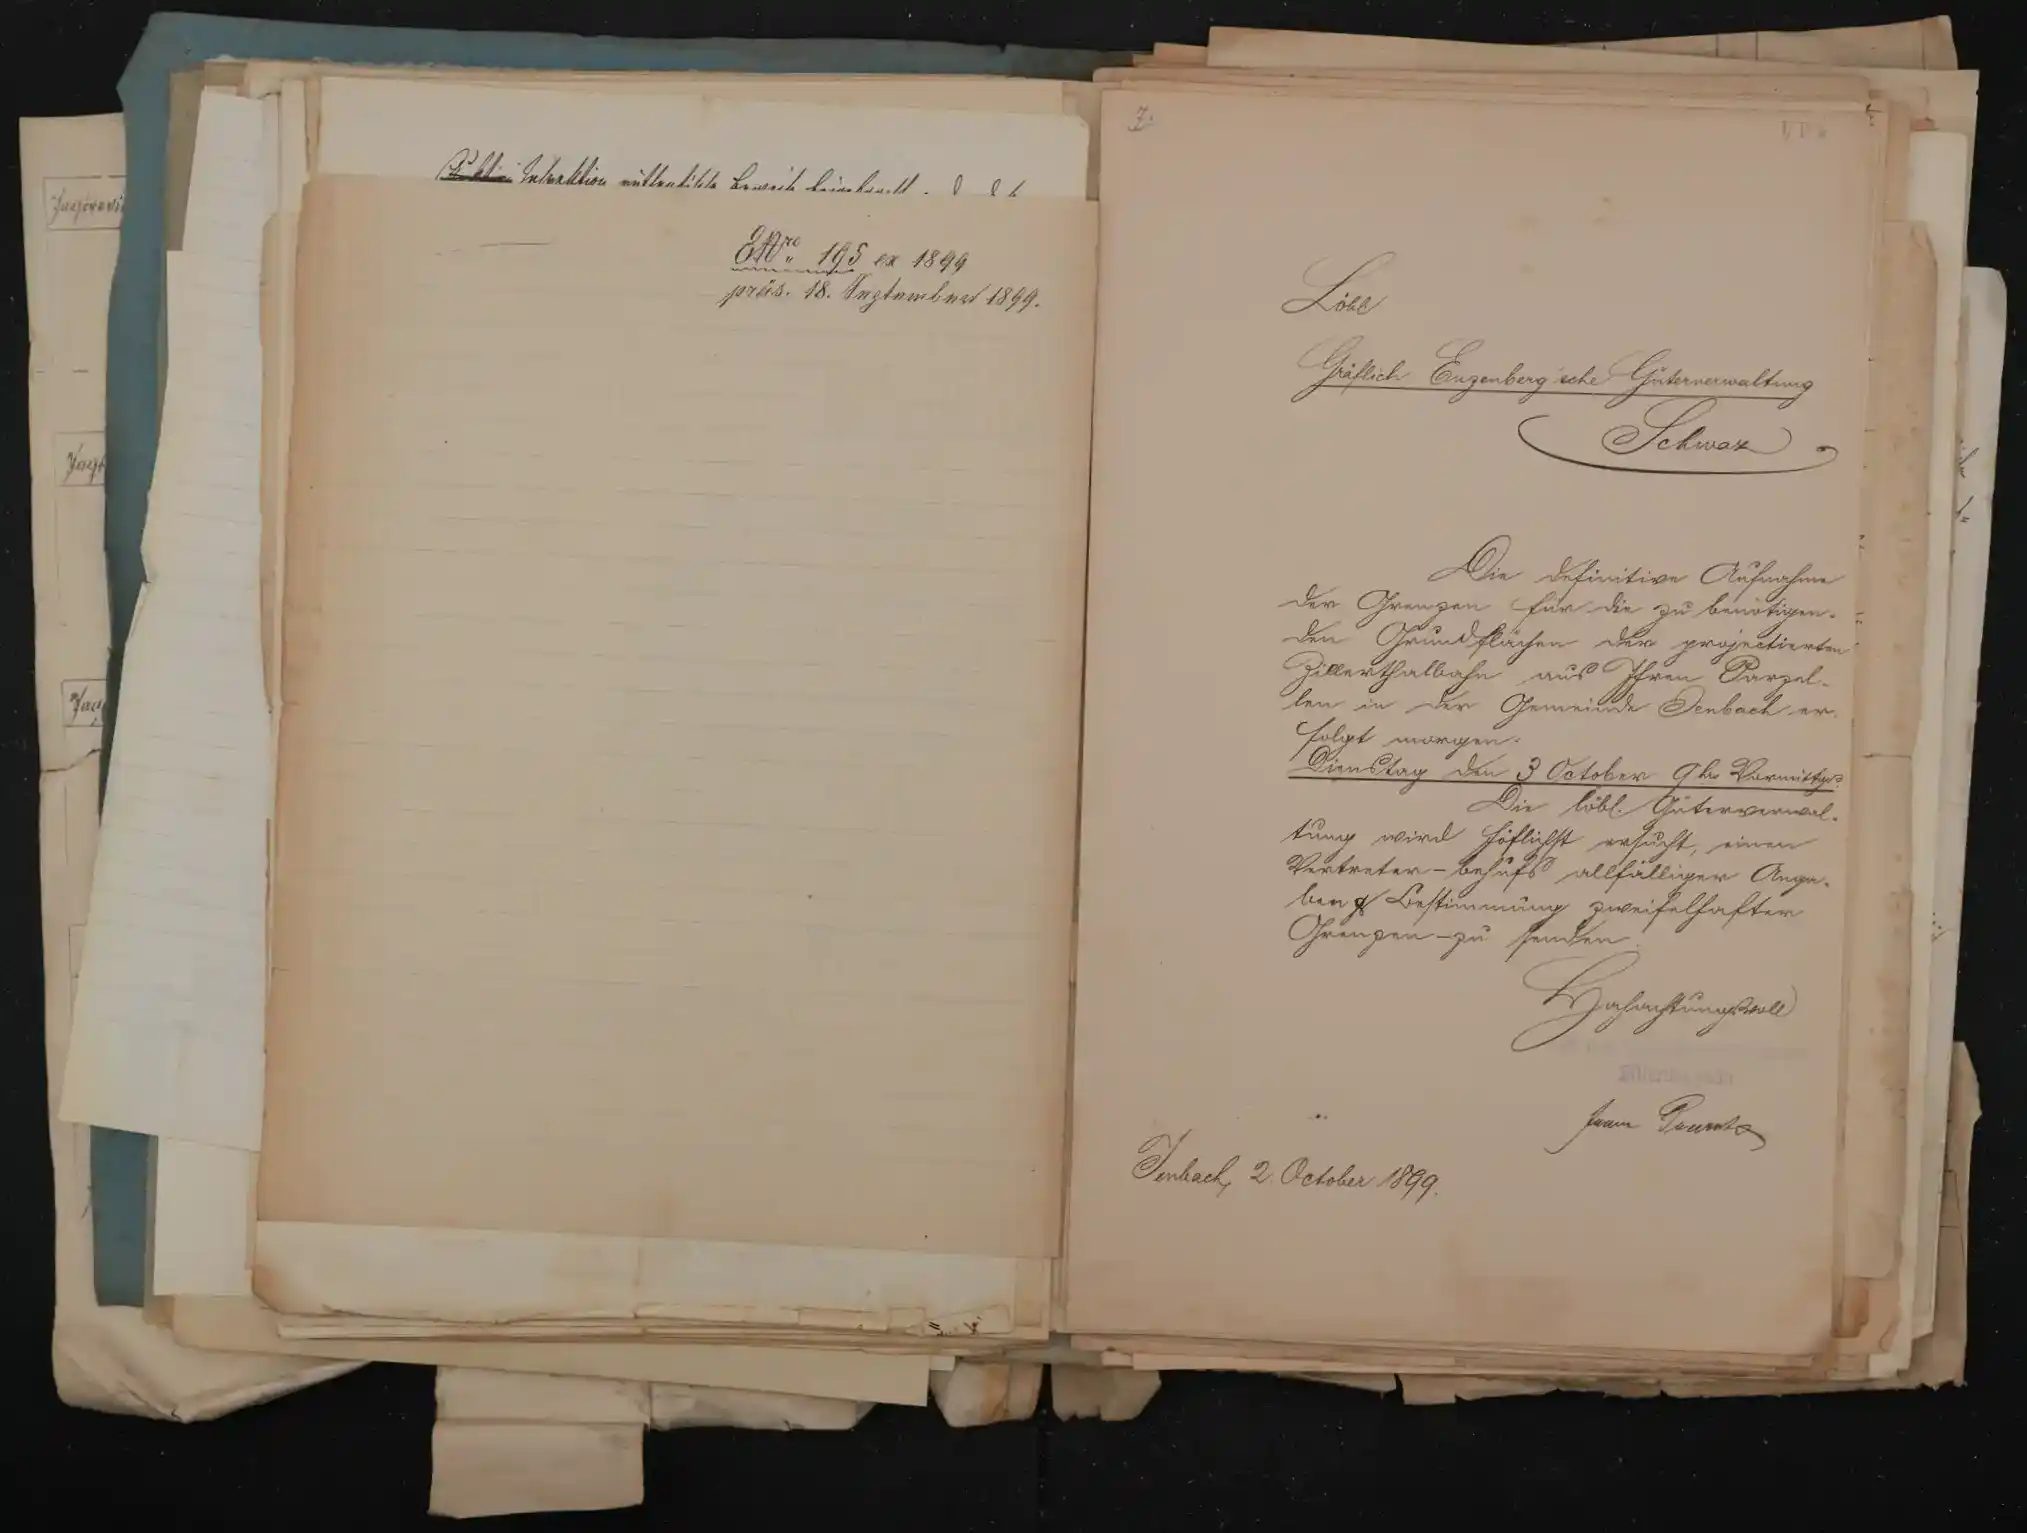 ENro 195 ex 1899
präs. 18. September 1899.
7.
Löbl
Gräflich Enzenberg'sche Güterverwaltung
Schwaz
Die definitive Aufnahme
der Grenzen für die zu benötigen-
den Grundflächen der projectierten
Zillerthalbahn aus Ihren Parzel-
len in der Gemeinde Jenbach er-
folgt morgen:
Dienstag den 3 October 9 hr Vormittgs.
Die löbl. Güterverwal-
tung wird höflichst ersucht, einen
Vertreter – behufs allfälliger Anga-
ben & Bestimmung zweifelhafter
Grenzen – zu senden.
Hochachtungsvoll
Jenbach, 2. October 1899.